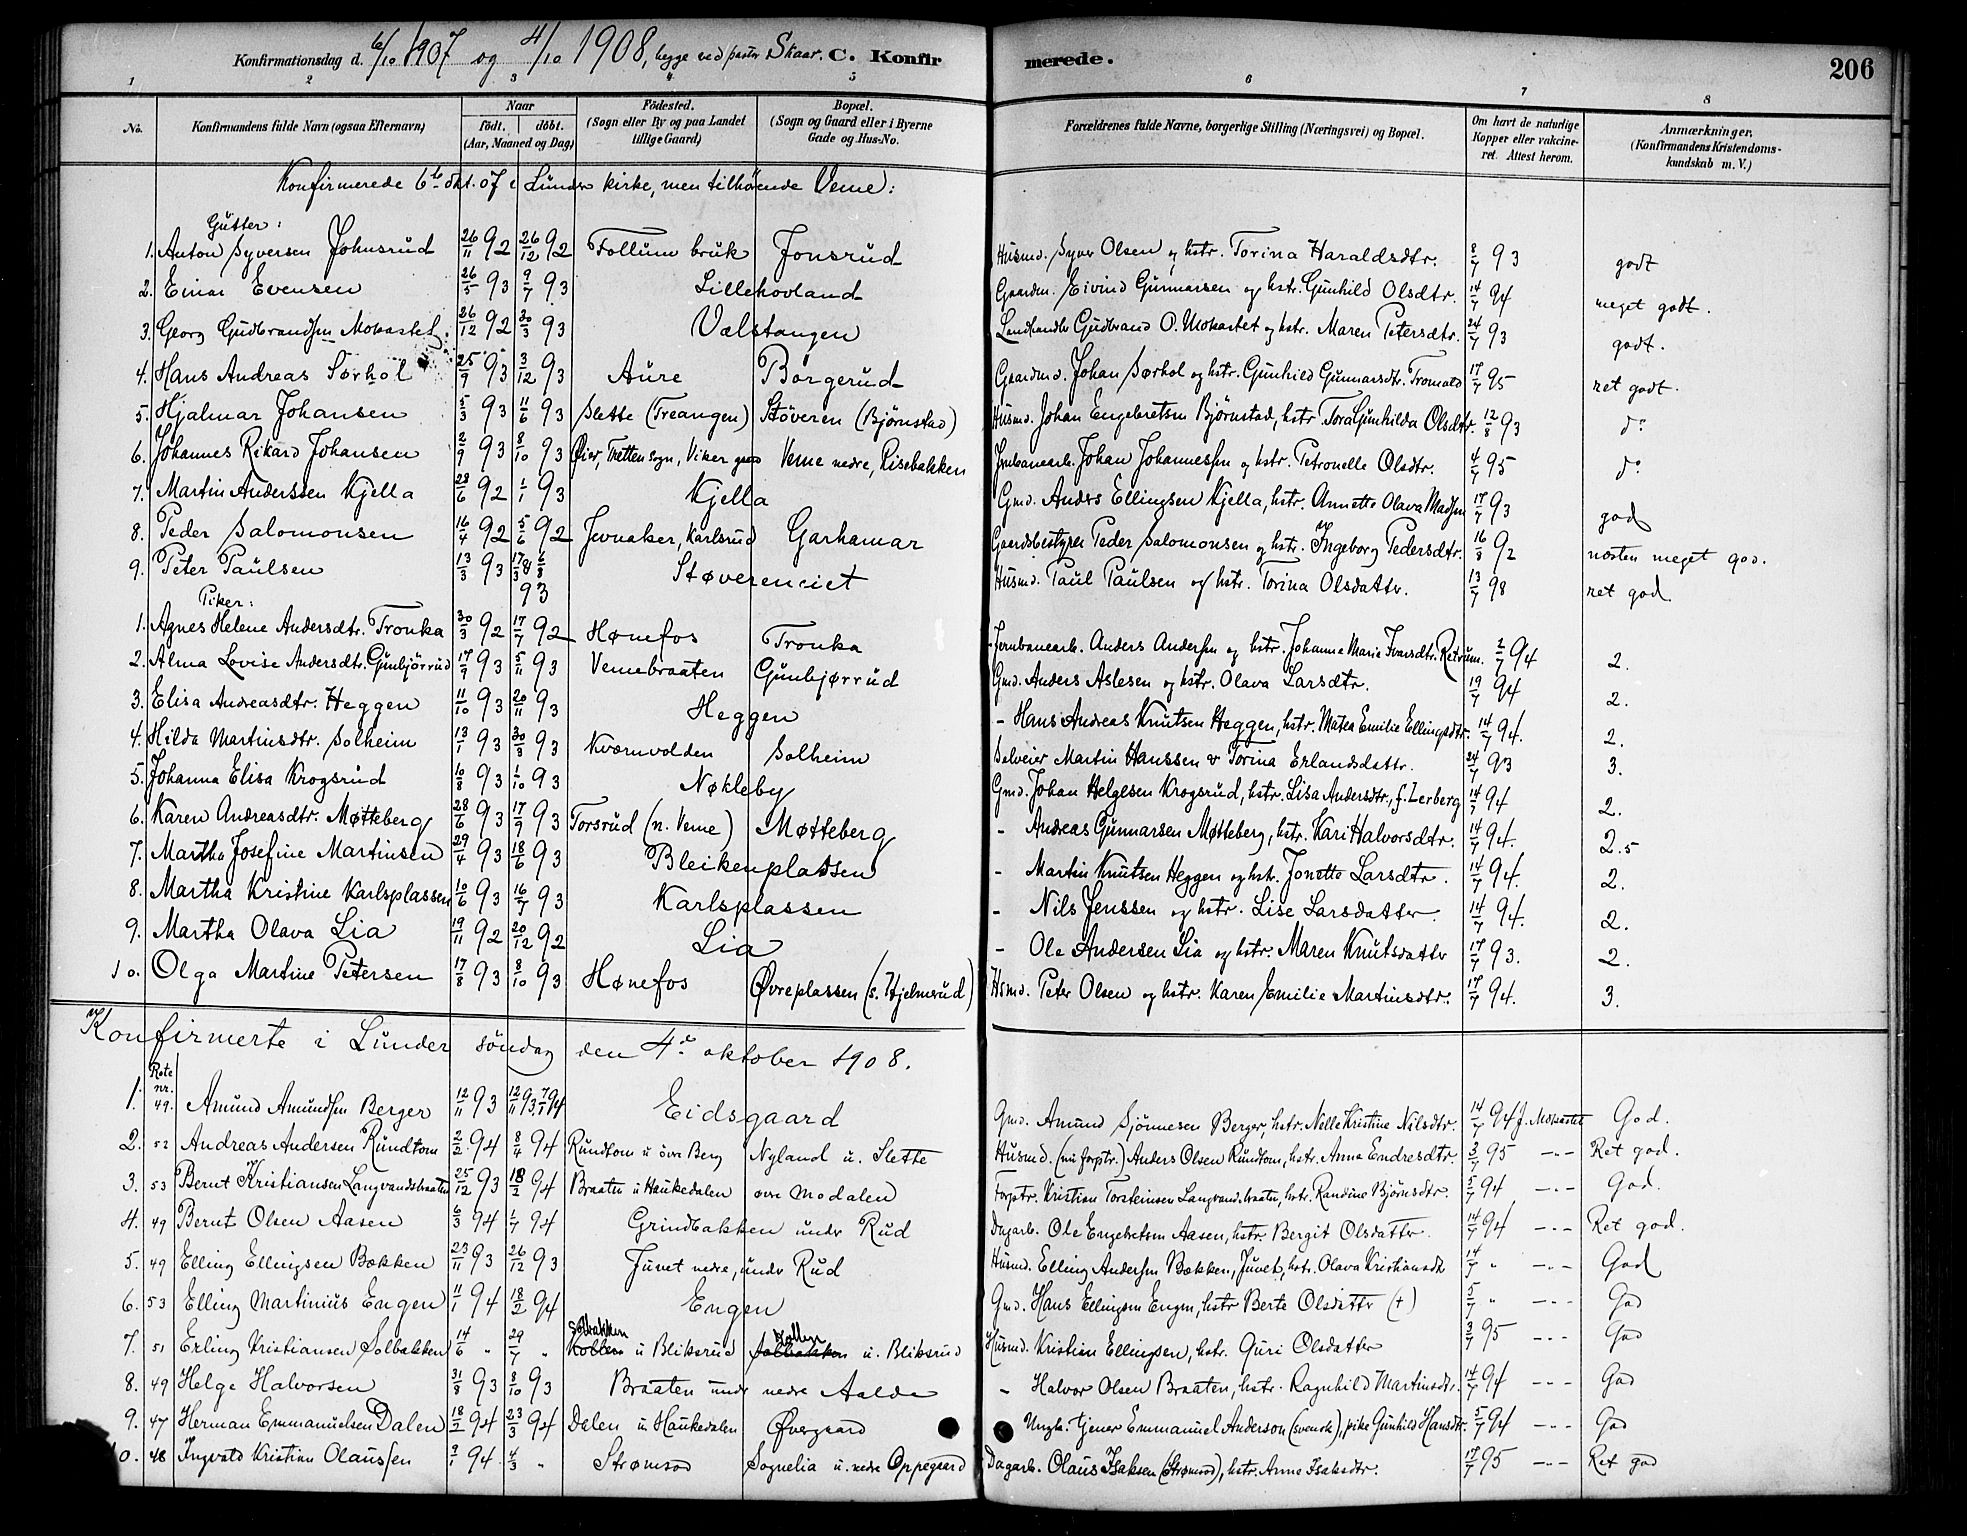 Konfirmationsdag d. 6/10 1907 og 4/10 1908, begge ved pastor Skaar. C. Konfirmerede. 206
1 2 3 4 5 6 7 8
No. Konfirmandens fulde Navn (ogsaa Efternavn) Naar födt. döbt. (Aar, Maaned og Dag) Födested. (Sogn eller By og paa Landet tillige Gaard) Bopæl. (Sogn og Gaard eller i Byerne Gade og Hus-No. Forældrenes fulde Navne, borgerlige Stilling (Næringsvei) og Bopæl. Om havt de naturlige Kopper eller vakcineret. Attest herom. Anmærkninger. (Konfirmandens Kristendomskundskab m. V.)
Konfirmerede 6te okt. 07 i Lunder kirke, men tilhørende Veme:
Gutter:
1. Anton Syversen Johnsrud 26/11 92 26/12 92 Follum bruk Jonsrud Husmd. Syver Olsen og hstr. Torina Haraldsdtr. 8/7 93 godt
2. Einar Evensen 26/5 93 9/7 93 Lillehovland Gaardm. Eivind Gunnarsen og hstr. Gunhild Olsdtr. 14/7 94 meget godt.
3. Georg Gudbrandsen Mokastet 26/12 92 30/3 93 Vælstangen Landhandler Gudbrand O. Mokastet og hstr. Maren Petersdtr. 24/7 93 godt.
4. Hans Andreas Sørhol 25/9 93 3/12 93 Aure Borgerud Gaardmd. Johan Sørhol og hstr. Gunhild Gunnarsdtr. Tromald 17/7 95 ret godt.
5. Hjalmar Johansen 5/3 93 11/6 93 Slette (Treangen) Støveren (Bjørnstad) Husmd. Johan Engebretsen Bjørnstad, hstr Tora Gunhilda Olsdtr. 12/8 93 do
6. Johannes Rikard Johansen 2/9 93 8/10 93 Øier, Tretten sogn, Viker gaard Veme nedre, Risebakken Jernbanearb. Johan Johannessen og hstr. Petronelle Olsdtr. 4/7 95 do
7. Martin Anderssen Kjella 28/6 92 1/1 93 Kjella Gmd. Anders Ellingsen Kjella, hstr. Annette Olava Madsen 17/7 93 god
8. Peder Salomonsen 16/4 92 5/6 92 Jevnaker, Karlsrud Garhamar Gaardsbestyrer Peder Salomonsen og hstr. Ingeborg Pedersdtr. 16/8 92 næsten meget god.
9. Peter Paulsen 13/3 93 17/3 & 6/8 93 Støvereneiet Husmd. Paul Paulsen og hstr. Torina Olsdatter. 13/7 98 ret god.
Piker:
1. Agnes Helene Andersdtr. Tronka 30/3 92 17/7 92 Hønefos Tronka Jernbanearb. Anders Andersen og hstr. Johanne Marie Ivarsdtr. Retrum. 2/7 94 2.
2. Alma Lovise Andersdtr. Gunbjörrud 17/9 93 5/11 93 Vemebraaten Gunbjørrud Gmd. Anders Aslesen og hstr. Olava Larsdtr. 19/7 94 2.
3. Elisa Andreasdtr. Heggen 11/10 93 20/11 93 Heggen - Hans Andreas Knutsen Heggen, hstr. Matea Emilie Ellingsdtr. 14/7 94. 2.
4. Hilda Martinsdtr. Solheim 13/1 93 30/3 93 Kværnvolden Solheim Selveier Martin Hanssen & Torina Erlandsdattr. 24/7 93 3.
5. Johanna Elisa Krogsrud 10/8 93 1/10 93 Nøkleby Gmd. Johan Helgesen Krogsrud, hstr. Lisa Andersdtr., f. Lerberg 14/7 94 2.
6. Karen Andreasdtr. Møtteberg 28/6 93 17/9 93 Torsrud (n. Veme) Møtteberg - Andreas Gunnarsen Møtteberg, hstr. Kari Halvorsdtr. 14/7 94. 2.5
7. Martha Josefine Martinsen 29/4 93 18/6 93 Bleikenplassen - Martin Knutsen Heggen og hstr. Jonette Larsdtr. 14/7 94. 2.
8. Martha Kristine Karlsplassen 10/6 93 16/7 93 Karlsplassen - Nils Jenssen og hstr. Lise Larsdatter. 14/7 94. 2.
9. Martha Olava Lia 19/11 92 20/12 92 Lia - Ole Andersen Lia og hstr. Maren Knutsdatter 17/7 93. 2.
10. Olga Martine Petersen 17/8 93 8/10 93 Hønefos Øvreplassen (s. Hjelmerud) Hsmd. Peter Olsen og hstr. Karen Emilie Martinsdtr. 17/7 94. 3.
Konfirmerte i Lunder söndag den 4de oktober 1908.
Rote nr.
1. 49. Amund Amundsen Berger 12/11 93 12/11 93. 7/1 94 Eidsgaard Gmd. Amund Sjönnesen Berger, hstr. Nelle Kristine Nilsdtr. 14/7 94 J. Mokastet God.
2. 52 Andreas Andersen Rundtom 2/2 94 8/4 94 Rundtom u övre Berg Nyland u. Slette Husmd. (nu forptr.) Anders Olsen Rundtom, hstr. Anna Endresdtr. 3/7 95 -"- Ret god.
3. 53 Bernt Kristiansen Langvandsbraaten 25/12 93 18/2 94 Braaten u Haukedalen øvre Modalen Forptr. Kristian Torsteinsen Langvandsbraaten, hstr. Randine Bjørnsdtr. 5/7 94 -"- God.
4. 49 Bernt Olsen Aasen 6/3 94 1/7 94 Grindbakken under Rud Dagarb. Ole Engebretsen Aasen, hstr. Bergit Olsdatter. 14/7 94 -"- Ret god.
5. 49 Elling Ellingsen Bækken 23/11 93 26/12 93 Juvet nedre, under Rud Husmd. Elling Andersen Bækken, Juvet, hstr. Olava Kristiansdtr 14/7 " -"- God
6. 53 Elling Martinius Engen 11/1 94 18/2 94 Engen Gmd. Hans Ellingsen Engen, hstr Berte Olsdatter (+) 5/7 " -"- God
7. 51 Erling Kristiansen Solbakken 14/6 " 29/7 " Solbakken Kollen u Bliksrud Kollen Solbakken u. Bliksrud Husmd. Kristian Ellingsen, hstr. Guri Olsdatter 3/7 95 -"- God
8. 49 Helge Halvorsen 31/8 93 8/10 93 Braaten under nedre Aalde - Halvor Olsen Braaten, hstr. Ragnhild Martinsdtr. 14/7 94 -"- God
9. 47 Herman Emmanuelsen Dalen 18/2 94 23/3 94 Dalen u Haukedalen Øvergaard Ungk. tjener Emmanuel Anderson (svensk), pike Gunhild Hansdtr. 5/7 94 -"- God
10. 48 Ingvald Kristian Olaussen 9/1 94. 4/3 " Strømsod Sognelia u. nedre Oppegaard Dagarb. Olaus Isaksen (Strømsod), hstr. Anne Isaksdtr. 17/7 95 -"- Ret god